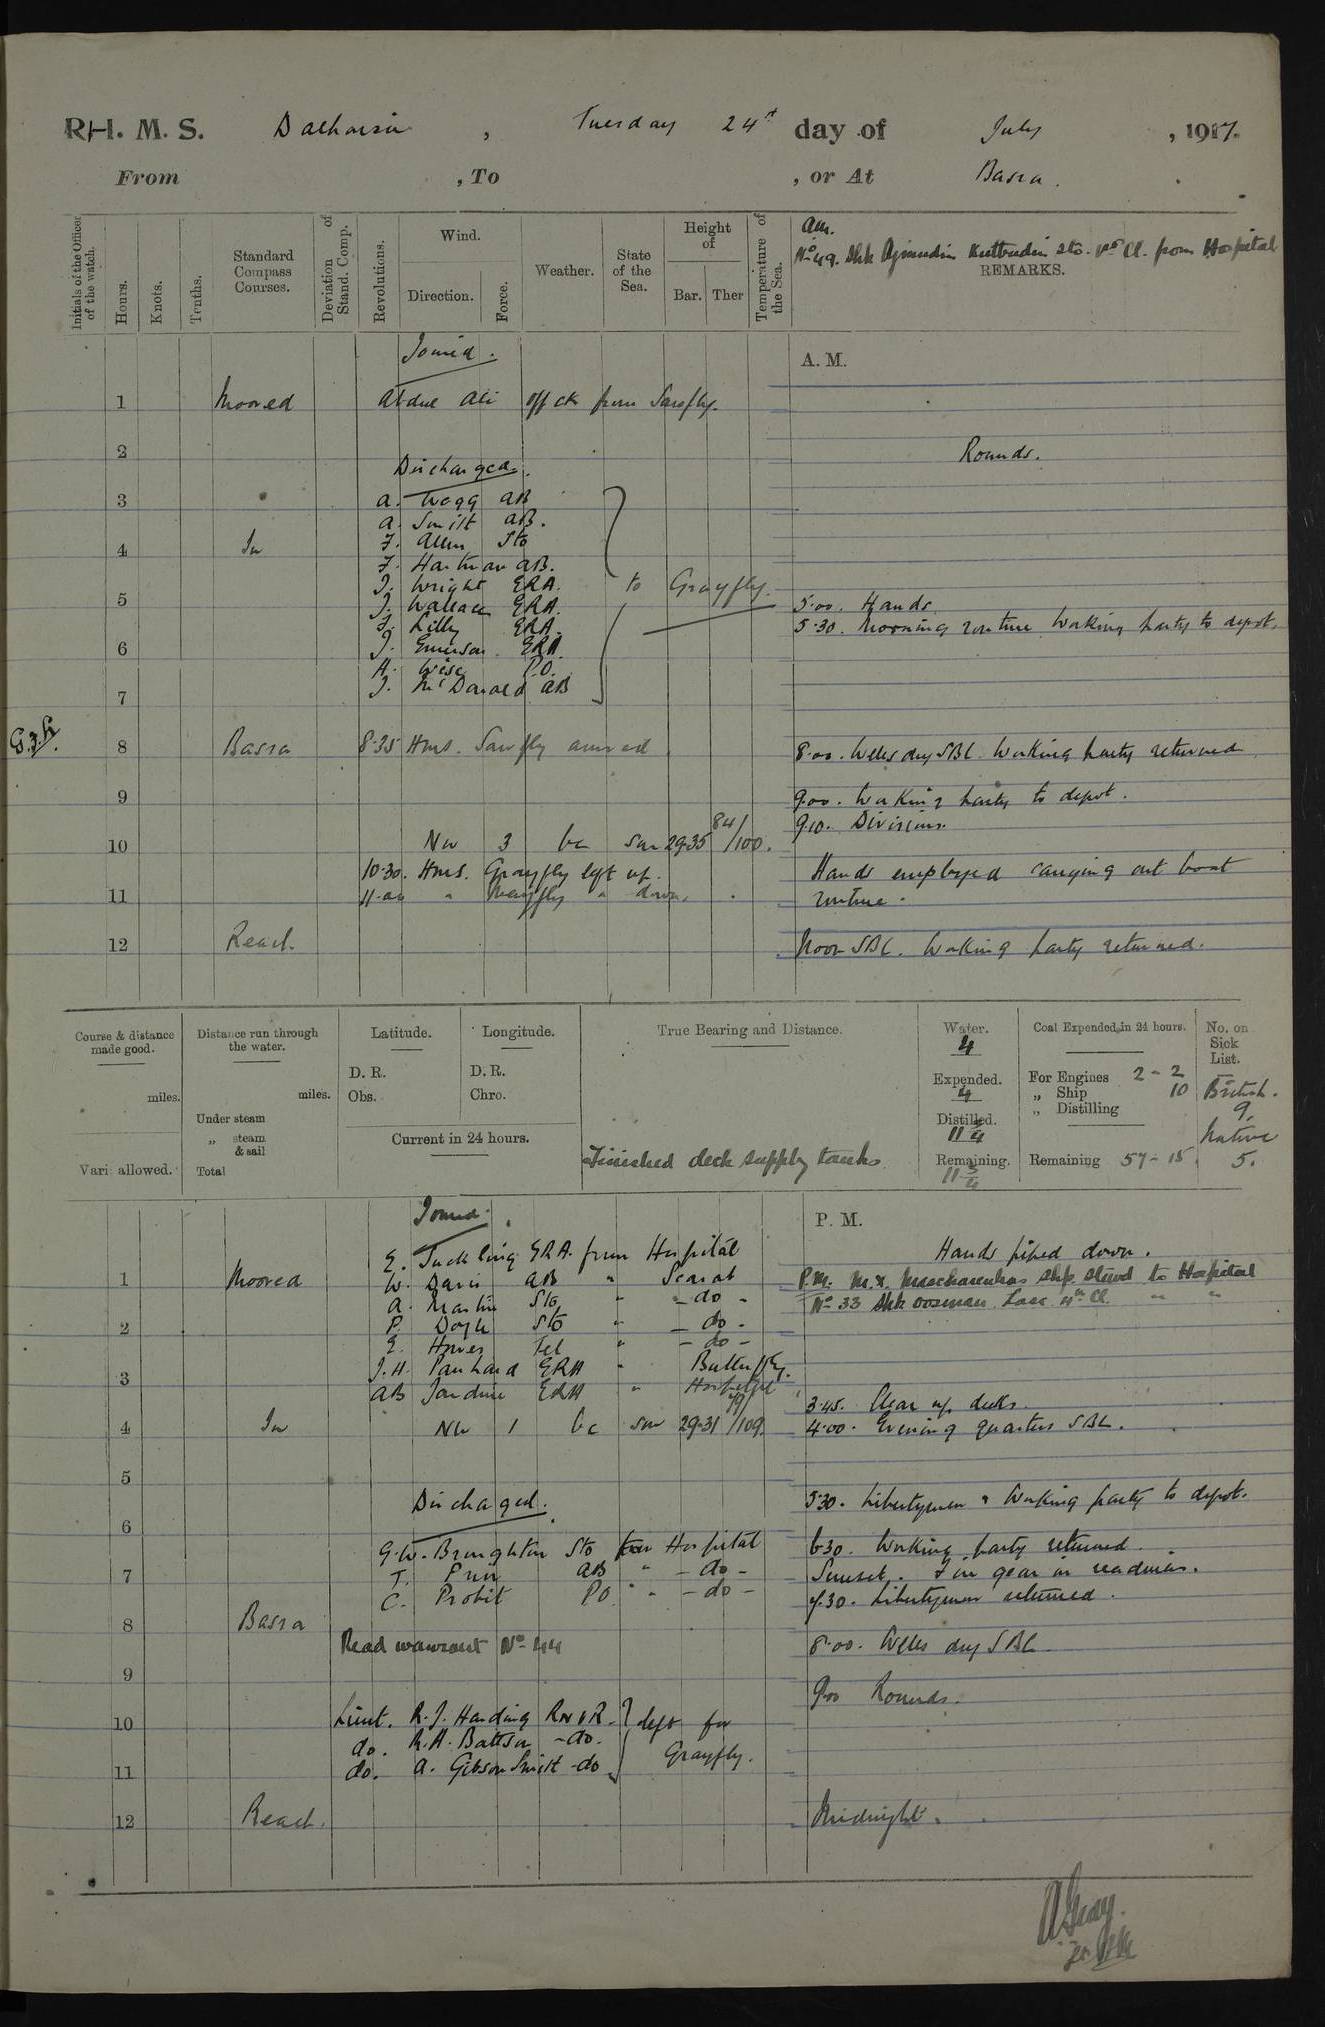 R.I.M.S. Dalhousie, Tuesday 24th day of July, 1917.
From , To , or At Basra.
Initials of the Officer of the watch.
Hours.
Knots.
Tenths.
Standard Compass Courses.
Deviation of Stand. Comp.
Revolutions.
Wind.
Direction.
Force.
Weather.
State of the Sea.
Height of
Bar. Ther
Temperature of the Sea.
REMARKS.
AM.
No 49. Shk Ajmudin Kutbudin Sto. 1st Cl. from Hospital
A. M.
Joined.
1 Moored Abdul Ali Off ck from Sawfly.
2 Rounds.
Discharged.
3 A. Wogg AB
A. Smith AB.
4 In F. Allen Sto
F. Hartman AB.
J. Wright ERA. to Grayfly.
5 J. Wallace ERA. 5.00. Hands
J. Lilly ERA. 5.30. Morning routine Working party to depot.
6 J. Emerson ERA.
H. Wise P.O.
7 J. McDonald AB
8 Basra 8.35 HMS. Sawfly arrived 8.00. Weather dry SBC. Working party returned
9 9.00. Working party to depot.
9.10. Divisions.
10 NW 3 bc Sm 29.35 84/100.
10.30. HMS. Grayfly left up. Hands employed carrying out boat
11 11.00 " Mayfly " down. routine.
12 Reach. Noon SBC. Working party returned.
Course & distance made good.
miles.
Vari: allowed.
Distance run through the water.
miles.
Under steam
" steam & sail
Total
Latitude.
D. R.
Obs.
Longitude.
D. R.
Chro.
Current in 24 hours.
True Bearing and Distance.
Finished deck supply tanks
Water.
4
Expended.
4
Distilled.
11 3/4
Remaining.
11 3/4
Coal Expended in 24 hours.
For Engines 2-2
" Ship 10
" Distilling
Remaining 57-15
No. on Sick List.
British.
9.
Native
5.
P. M.
Joined.
E. Tuckling ERA. from Hospital Hands piped down.
1 Moored W. Davis AB " Scarab P.M. M.X. Mascharenhas Shp. Stewd to Hospital
A. Martin Sto " - do - No 33 Shk Oosman Lasc 4th Cl. " "
2 P. Doyle Sto " - do -
E. Howes Tel " - do -
3 J.H. Panhard ERA " Butterfly.
AB Jardine ERA " Hospital 3.45. Clear up decks.
4 In NW 1 bc Sm 29.31 79/109. 4.00. Evening quarters SBC.
5
Discharged. 5.30. Libertymen & Working party to depot.
6
G.W. Broughton Sto Hospital 6.30. Working party returned.
7 T. AB " - do - Sunset. Fire gear in readiness.
C. Probit PO " - do - 7.30. Libertymen returned.
8 Basra
Read warrant No 44 8.00. Weather dry SBC.
9
9.00 Rounds.
10 Lieut. R.J. Harding RNVR. left for
do. R.H. Battson - do. Grayfly.
11 do. A. Gibson Smith - do
12 Reach. Midnight.
A Gray.